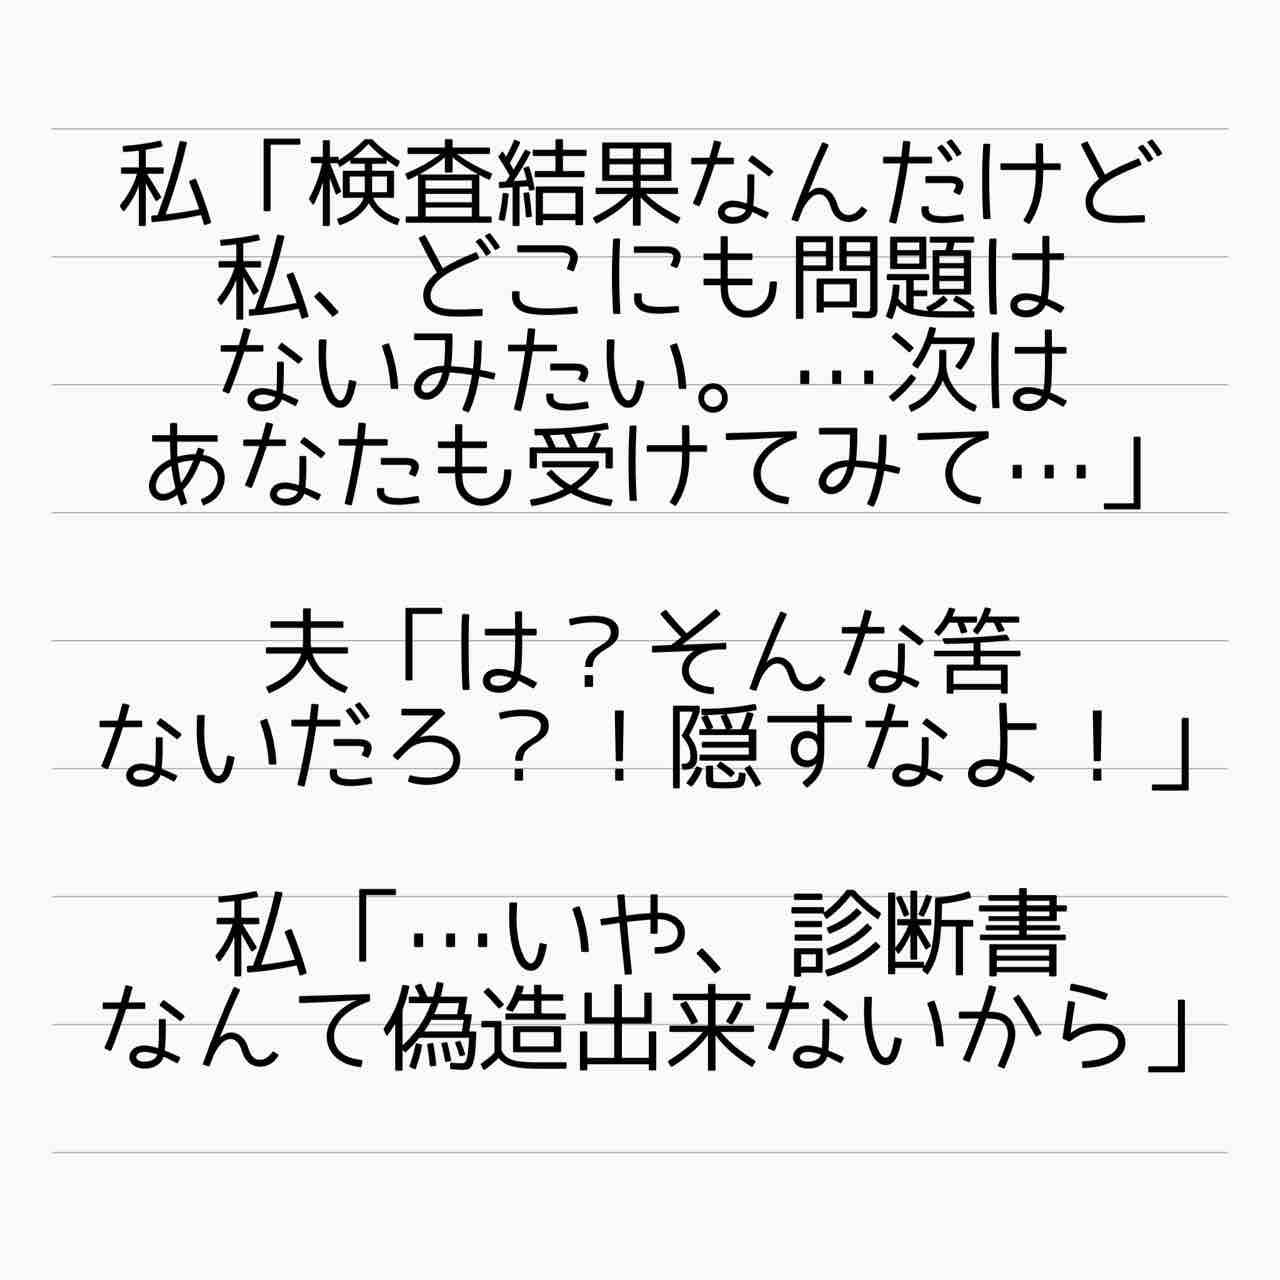 私「検査結果なんだけど
私、どこにも問題は
ないみたい。…次は
あなたも受けてみて…」
夫「は？そんな筈
ないだろ？！隠すなよ！」
私「…いや、診断書
なんて偽造出来ないから」